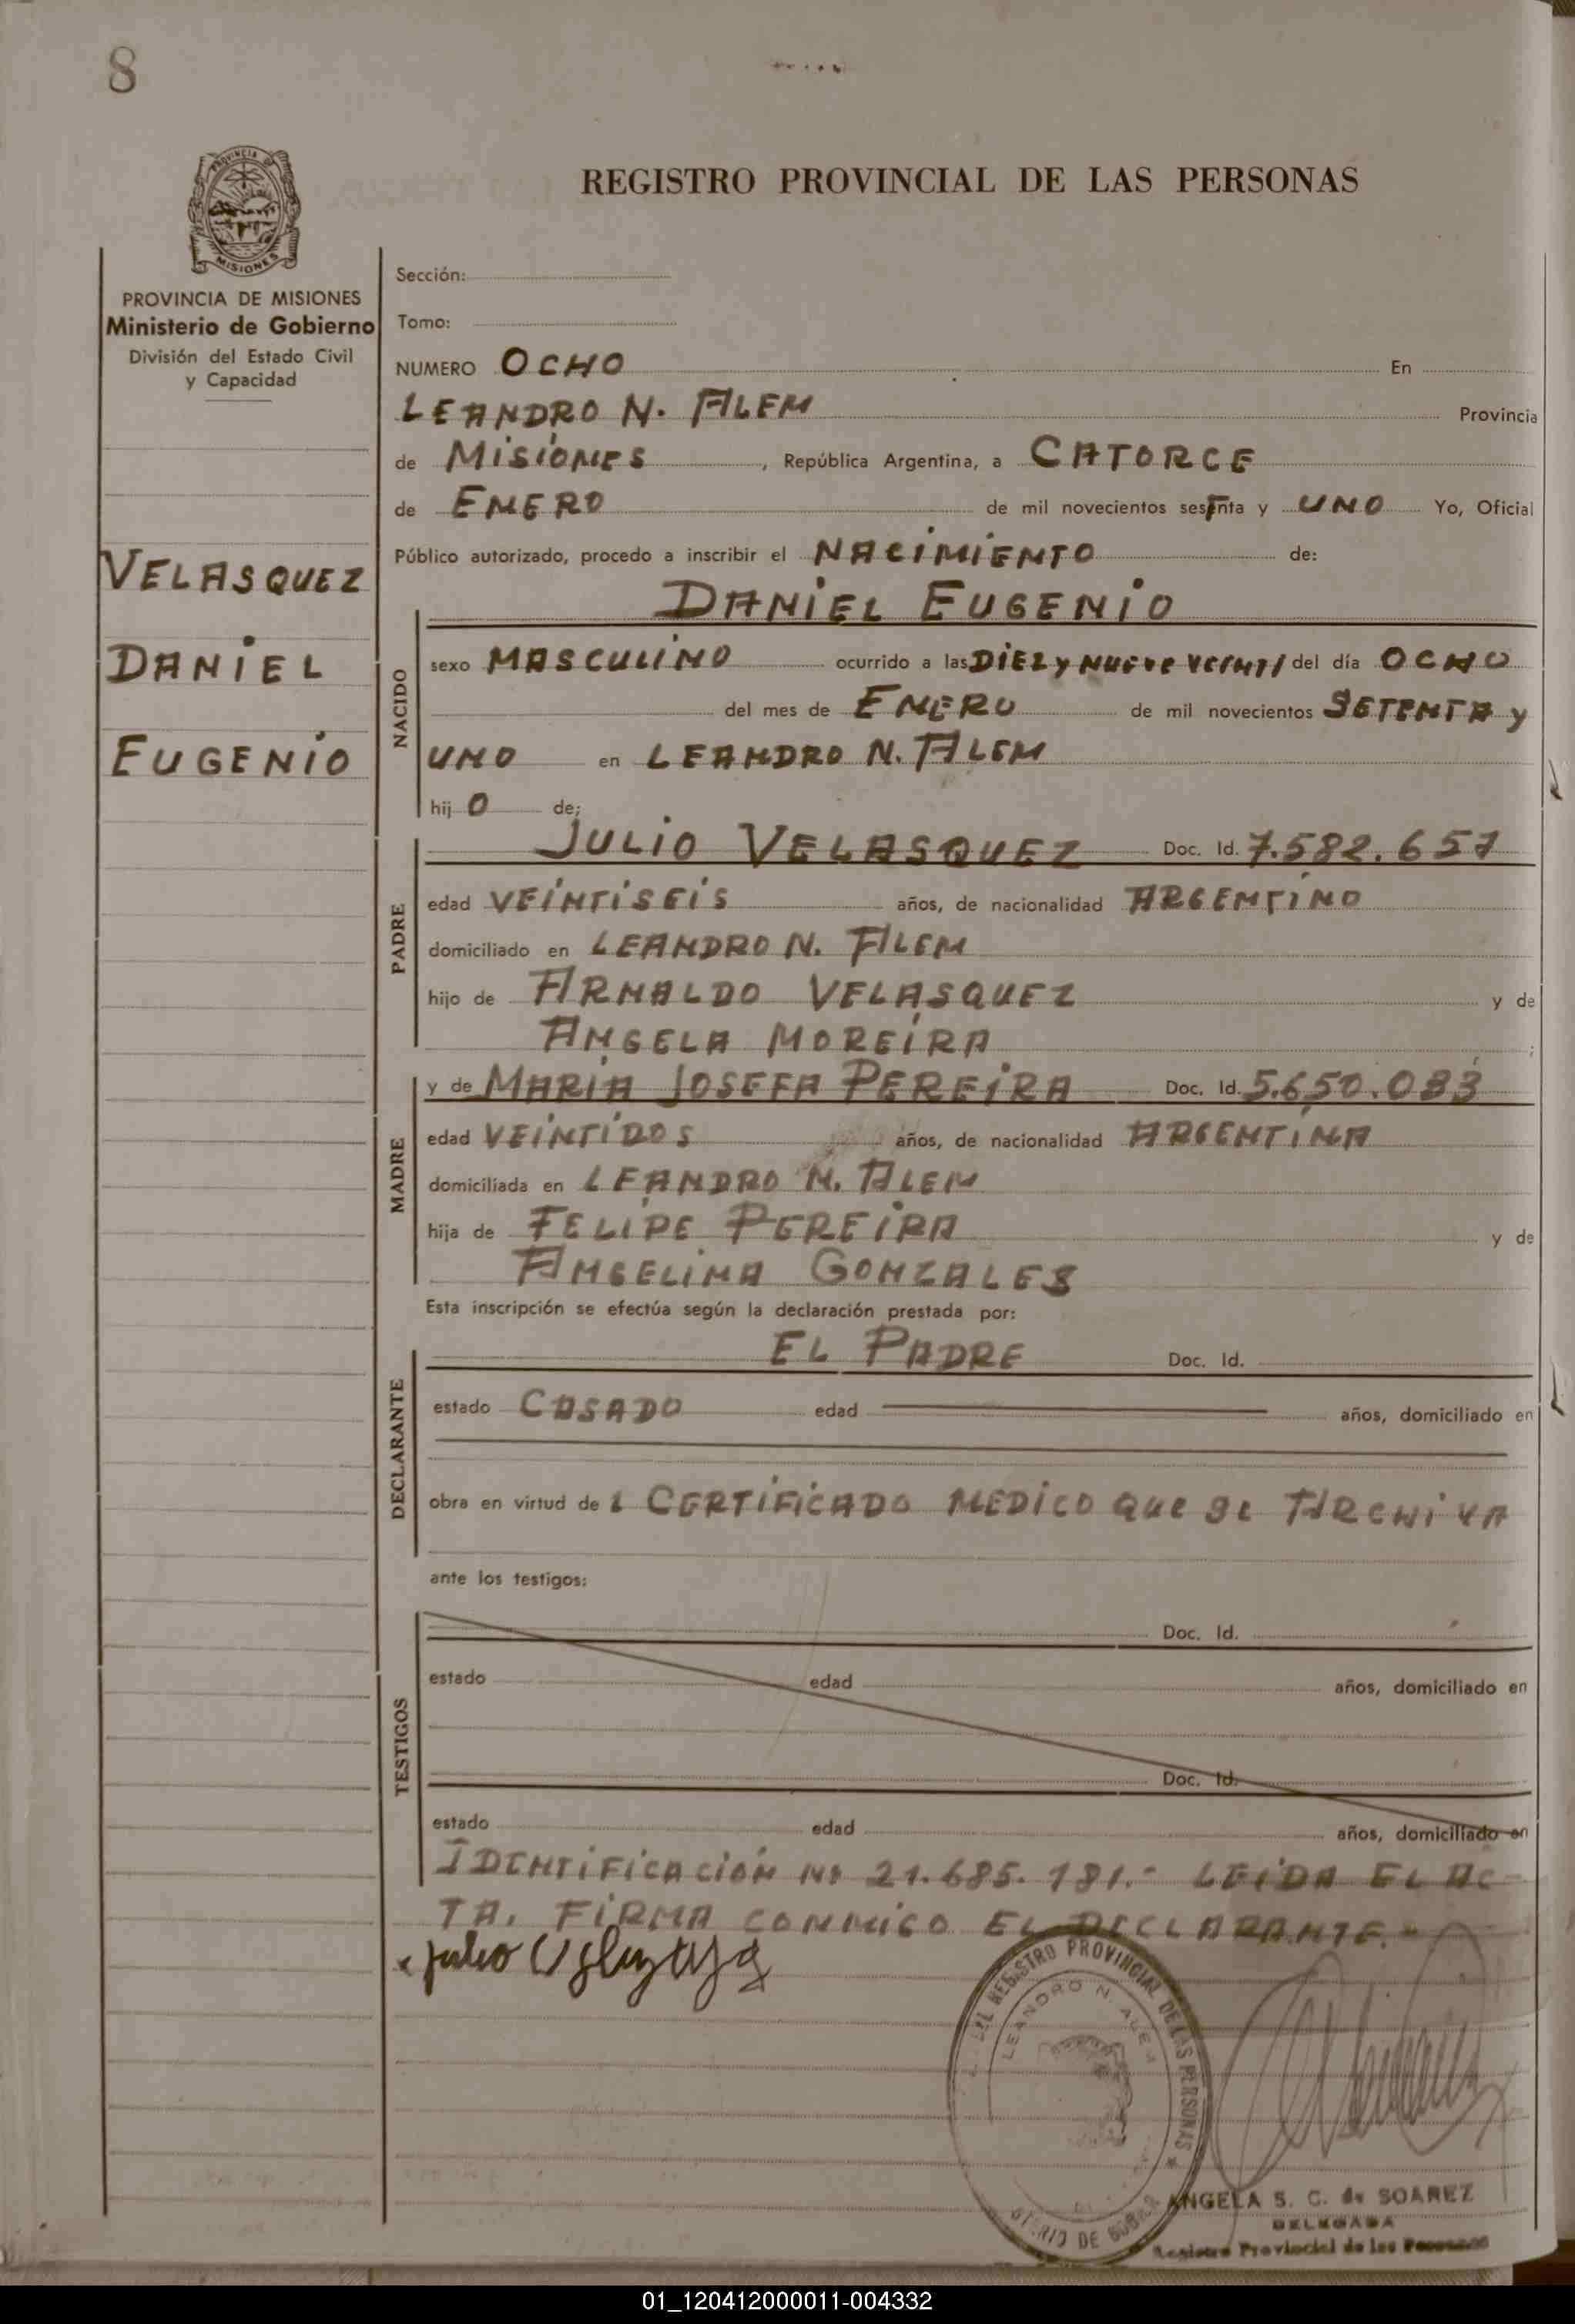 8
REGISTRO PROVINCIAL DE LAS PERSONAS
PROVINCIA DE
MISIONES
PROVINCIA DE MISIONES
Ministerio de Gobierno
División del Estado Civil
y Capacidad
VELASQUEZ
DANIEL
EUGENIO
Sección:
Tomo:
NUMERO OCHO En
LEANDRO N. ALEM Provincia
de MISIONES, República Argentina, a CATORCE
de ENERO de mil novecientos sesenta y UNO Yo, Oficial
Público autorizado, procedo a inscribir el NACIMIENTO de:
DANIEL EUGENIO
NACIDO
sexo MASCULINO ocurrido a las DIEZ y NUEVE VEINTI del día OCHO
del mes de ENERO de mil novecientos SETENTA y
UNO en LEANDRO N. ALEM
hij O de;
PADRE
JULIO VELASQUEZ Doc. Id. 7.582.657
edad VEINTISEIS años, de nacionalidad ARGENTINO
domiciliado en LEANDRO N. ALEM
hijo de ARNALDO VELASQUEZ y de
ANGELA MOREIRA ;
MADRE
y de MARIA JOSEFA PEREIRA Doc. Id. 5.650.083
edad VEINTIDOS años, de nacionalidad ARGENTINA
domiciliada en LEANDRO N. ALEM
hija de FELIPE PEREIRA y de
ANGELINA GONZALES
Esta inscripción se efectúa según la declaración prestada por:
DECLARANTE
EL PADRE Doc. Id.
estado CASADO edad años, domiciliado en
obra en virtud de L CERTIFICADO MEDICO QUE SE ARCHIVA
ante los testigos:
TESTIGOS
Doc. Id.
estado edad años, domiciliado en
Doc. Id.
estado edad años, domiciliado en
IDENTIFICACIÓN Nº 21.685.181.- LEIDA EL AC
TA, FIRMA CONMIGO EL DECLARANTE.-
Julio
DEL REGISTRO PROVINCIAL DE LAS PERSONAS
LEANDRO N. ALEM
ANGELA S. C. de SOAREZ
DELEGADA
Registro Provincial de las Personas
01_120412000011-004332